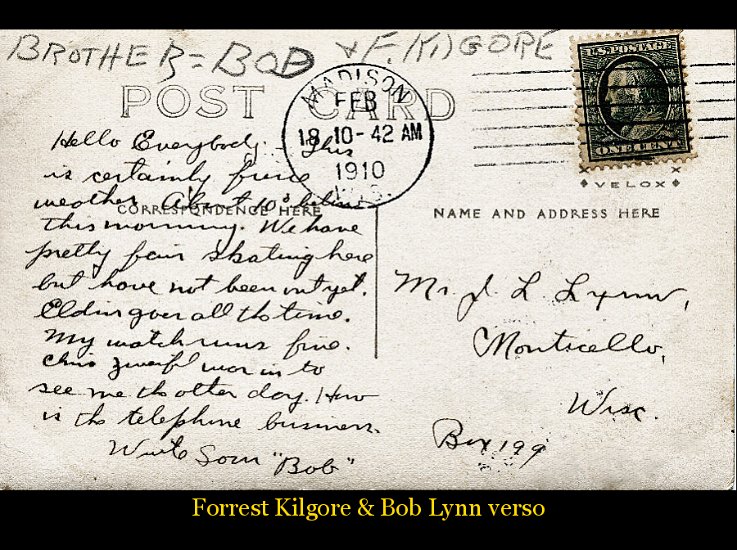 BROTHER = BOB & F. KILGORE
POST CARD
MADISON
FEB
18 10-42 AM
1910
WIS.
U.S. POSTAGE
ONE CENT
VELOX
CORRESPONDENCE HERE
NAME AND ADDRESS HERE
Hello Everybody:- This
is certainly fierce
weather About 10° below
this morning. We have
pretty fair skating here
but have not been out yet.
over all the time.
My watch runs fine.
Chris Zweifl was in to
see me th other day. How
is th telephone business.
Write Soon "Bob"
Mr J. L. Lynn,
Monticello,
Wisc.
Box 199
Forrest Kilgore & Bob Lynn verso